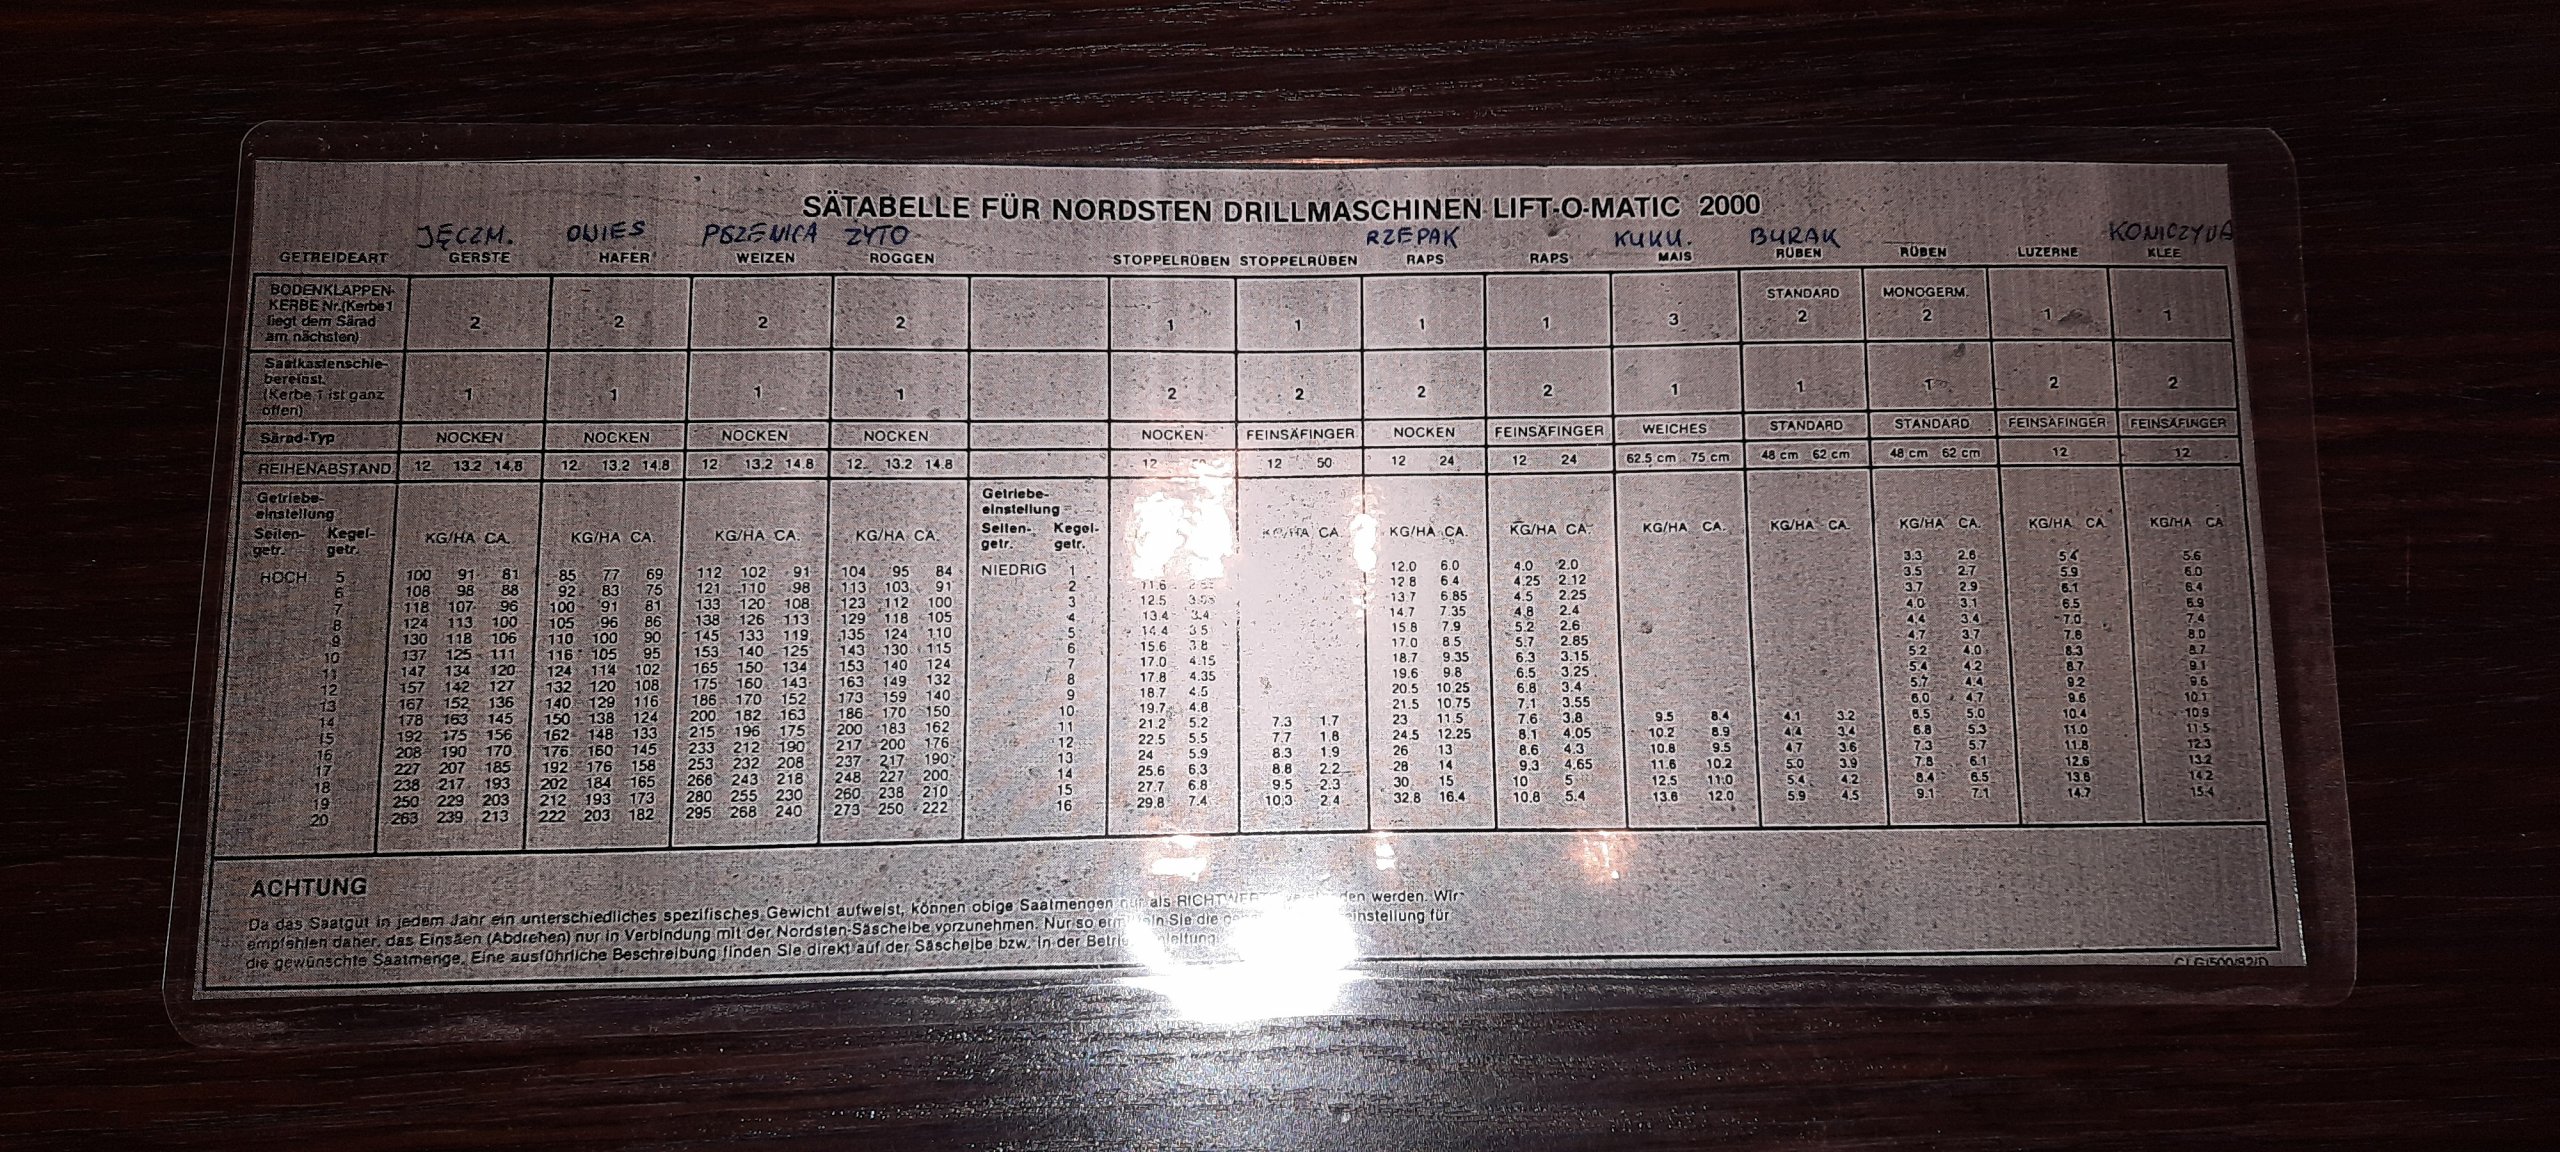 SÄTABELLE FÜR NORDSTEN DRILLMASCHINEN LIFT-O-MATIC 2000
JĘCZM. OWIES PSZENICA ŻYTO RZEPAK KUKU. BURAK KONICZYNA
GETREIDEART GERSTE HAFER WEIZEN ROGGEN STOPPELRÜBEN STOPPELRÜBEN RAPS RAPS MAIS RÜBEN RÜBEN LUZERNE KLEE
BODENKLAPPEN- STANDARD MONOGERM.
KERBE Nr.(Kerbe 1
liegt dem Särad 2 2 2 2 1 1 1 1 3 2 2 1 1
am nächsten)
Saatkastenschie-
bereinst.
(Kerbe 1 ist ganz 1 1 1 1 2 2 2 2 1 1 1 2 2
offen)
Särad-Typ NOCKEN NOCKEN NOCKEN NOCKEN NOCKEN FEINSÄFINGER NOCKEN FEINSÄFINGER WEICHES STANDARD STANDARD FEINSÄFINGER FEINSÄFINGER
REIHENABSTAND 12 13.2 14.8 12 13.2 14.8 12 13.2 14.8 12 13.2 14.8 12 12 50 12 24 12 24 62.5 cm 75 cm 48 cm 62 cm 48 cm 62 cm 12 12
Getriebe- Getriebe-
einstellung einstellung
Seiten- Kegel- Seiten- Kegel-
getr. getr. KG/HA CA. KG/HA CA. KG/HA CA. KG/HA CA. getr. getr. KG/HA CA. KG/HA CA. KG/HA CA. KG/HA CA. KG/HA CA. KG/HA CA. KG/HA CA. KG/HA CA
HOCH 5 100 91 81 85 77 69 112 102 91 104 95 84 NIEDRIG 1 12.0 6.0 4.0 2.0 3.3 2.6 5.4 5.6
6 108 98 88 92 83 75 121 110 98 113 103 91 2 11.6 12.8 6.4 4.25 2.12 3.5 2.7 5.9 6.0
7 118 107 96 100 91 81 133 120 108 123 112 100 3 12.5 13.7 6.85 4.5 2.25 3.7 2.9 6.1 6.4
8 124 113 100 105 96 86 138 126 113 129 118 105 4 13.4 3.4 14.7 7.35 4.8 2.4 4.0 3.1 6.5 6.9
9 130 118 106 110 100 90 145 133 119 135 124 110 5 14.4 3.5 15.8 7.9 5.2 2.6 4.4 3.4 7.0 7.4
10 137 125 111 116 105 95 153 140 125 143 130 115 6 15.6 3.8 17.0 8.5 5.7 2.85 4.7 3.7 7.6 8.0
11 147 134 120 124 114 102 165 150 134 153 140 124 7 17.0 4.15 18.7 9.35 6.3 3.15 5.2 4.0 8.3 8.7
12 157 142 127 132 120 108 175 160 143 163 149 132 8 17.8 4.35 19.6 9.8 6.5 3.25 5.4 4.2 8.7 9.1
13 167 152 136 140 129 116 186 170 152 173 159 140 9 18.7 4.5 20.5 10.25 6.8 3.4 5.7 4.4 9.2 9.6
14 178 163 145 150 138 124 200 182 163 186 170 150 10 19.7 4.8 21.5 10.75 7.1 3.55 6.0 4.7 9.6 10.1
15 192 175 156 162 148 133 215 196 175 200 183 162 11 21.2 5.2 7.3 1.7 23 11.5 7.6 3.8 9.5 8.4 4.1 3.2 6.5 5.0 10.4 10.9
16 208 190 170 176 160 145 233 212 190 217 200 176 12 22.5 5.5 7.7 1.8 24.5 12.25 8.1 4.05 10.2 8.9 4.4 3.4 6.8 5.3 11.0 11.5
17 227 207 185 192 176 158 253 232 208 237 217 190 13 24 5.9 8.3 1.9 26 13 8.6 4.3 10.8 9.5 4.7 3.6 7.3 5.7 11.8 12.3
18 238 217 193 202 184 165 266 243 218 248 227 200 14 25.6 6.3 8.8 2.2 28 14 9.3 4.65 11.6 10.2 5.0 3.9 7.8 6.1 12.6 13.2
19 250 229 203 212 193 173 280 255 230 260 238 210 15 27.7 6.8 9.5 2.3 30 15 10 5 12.5 11.0 5.4 4.2 8.4 6.5 13.6 14.2
20 263 239 213 222 203 182 295 268 240 273 250 222 16 29.8 7.4 10.3 2.4 32.8 16.4 10.8 5.4 13.6 12.0 5.9 4.5 9.1 7.1 14.7 15.4
ACHTUNG
Da das Saatgut in jedem Jahr ein unterschiedliches spezifisches Gewicht aufweist, können obige Saatmengen nur als werden. Wir
empfehlen daher, das Einsäen (Abdrehen) nur in Verbindung mit der Nordsten-Säscheibe vorzunehmen. Nur so Sie die für
die gewünschte Saatmenge. Eine ausführliche Beschreibung finden Sie direkt auf der Säscheibe bzw. in der